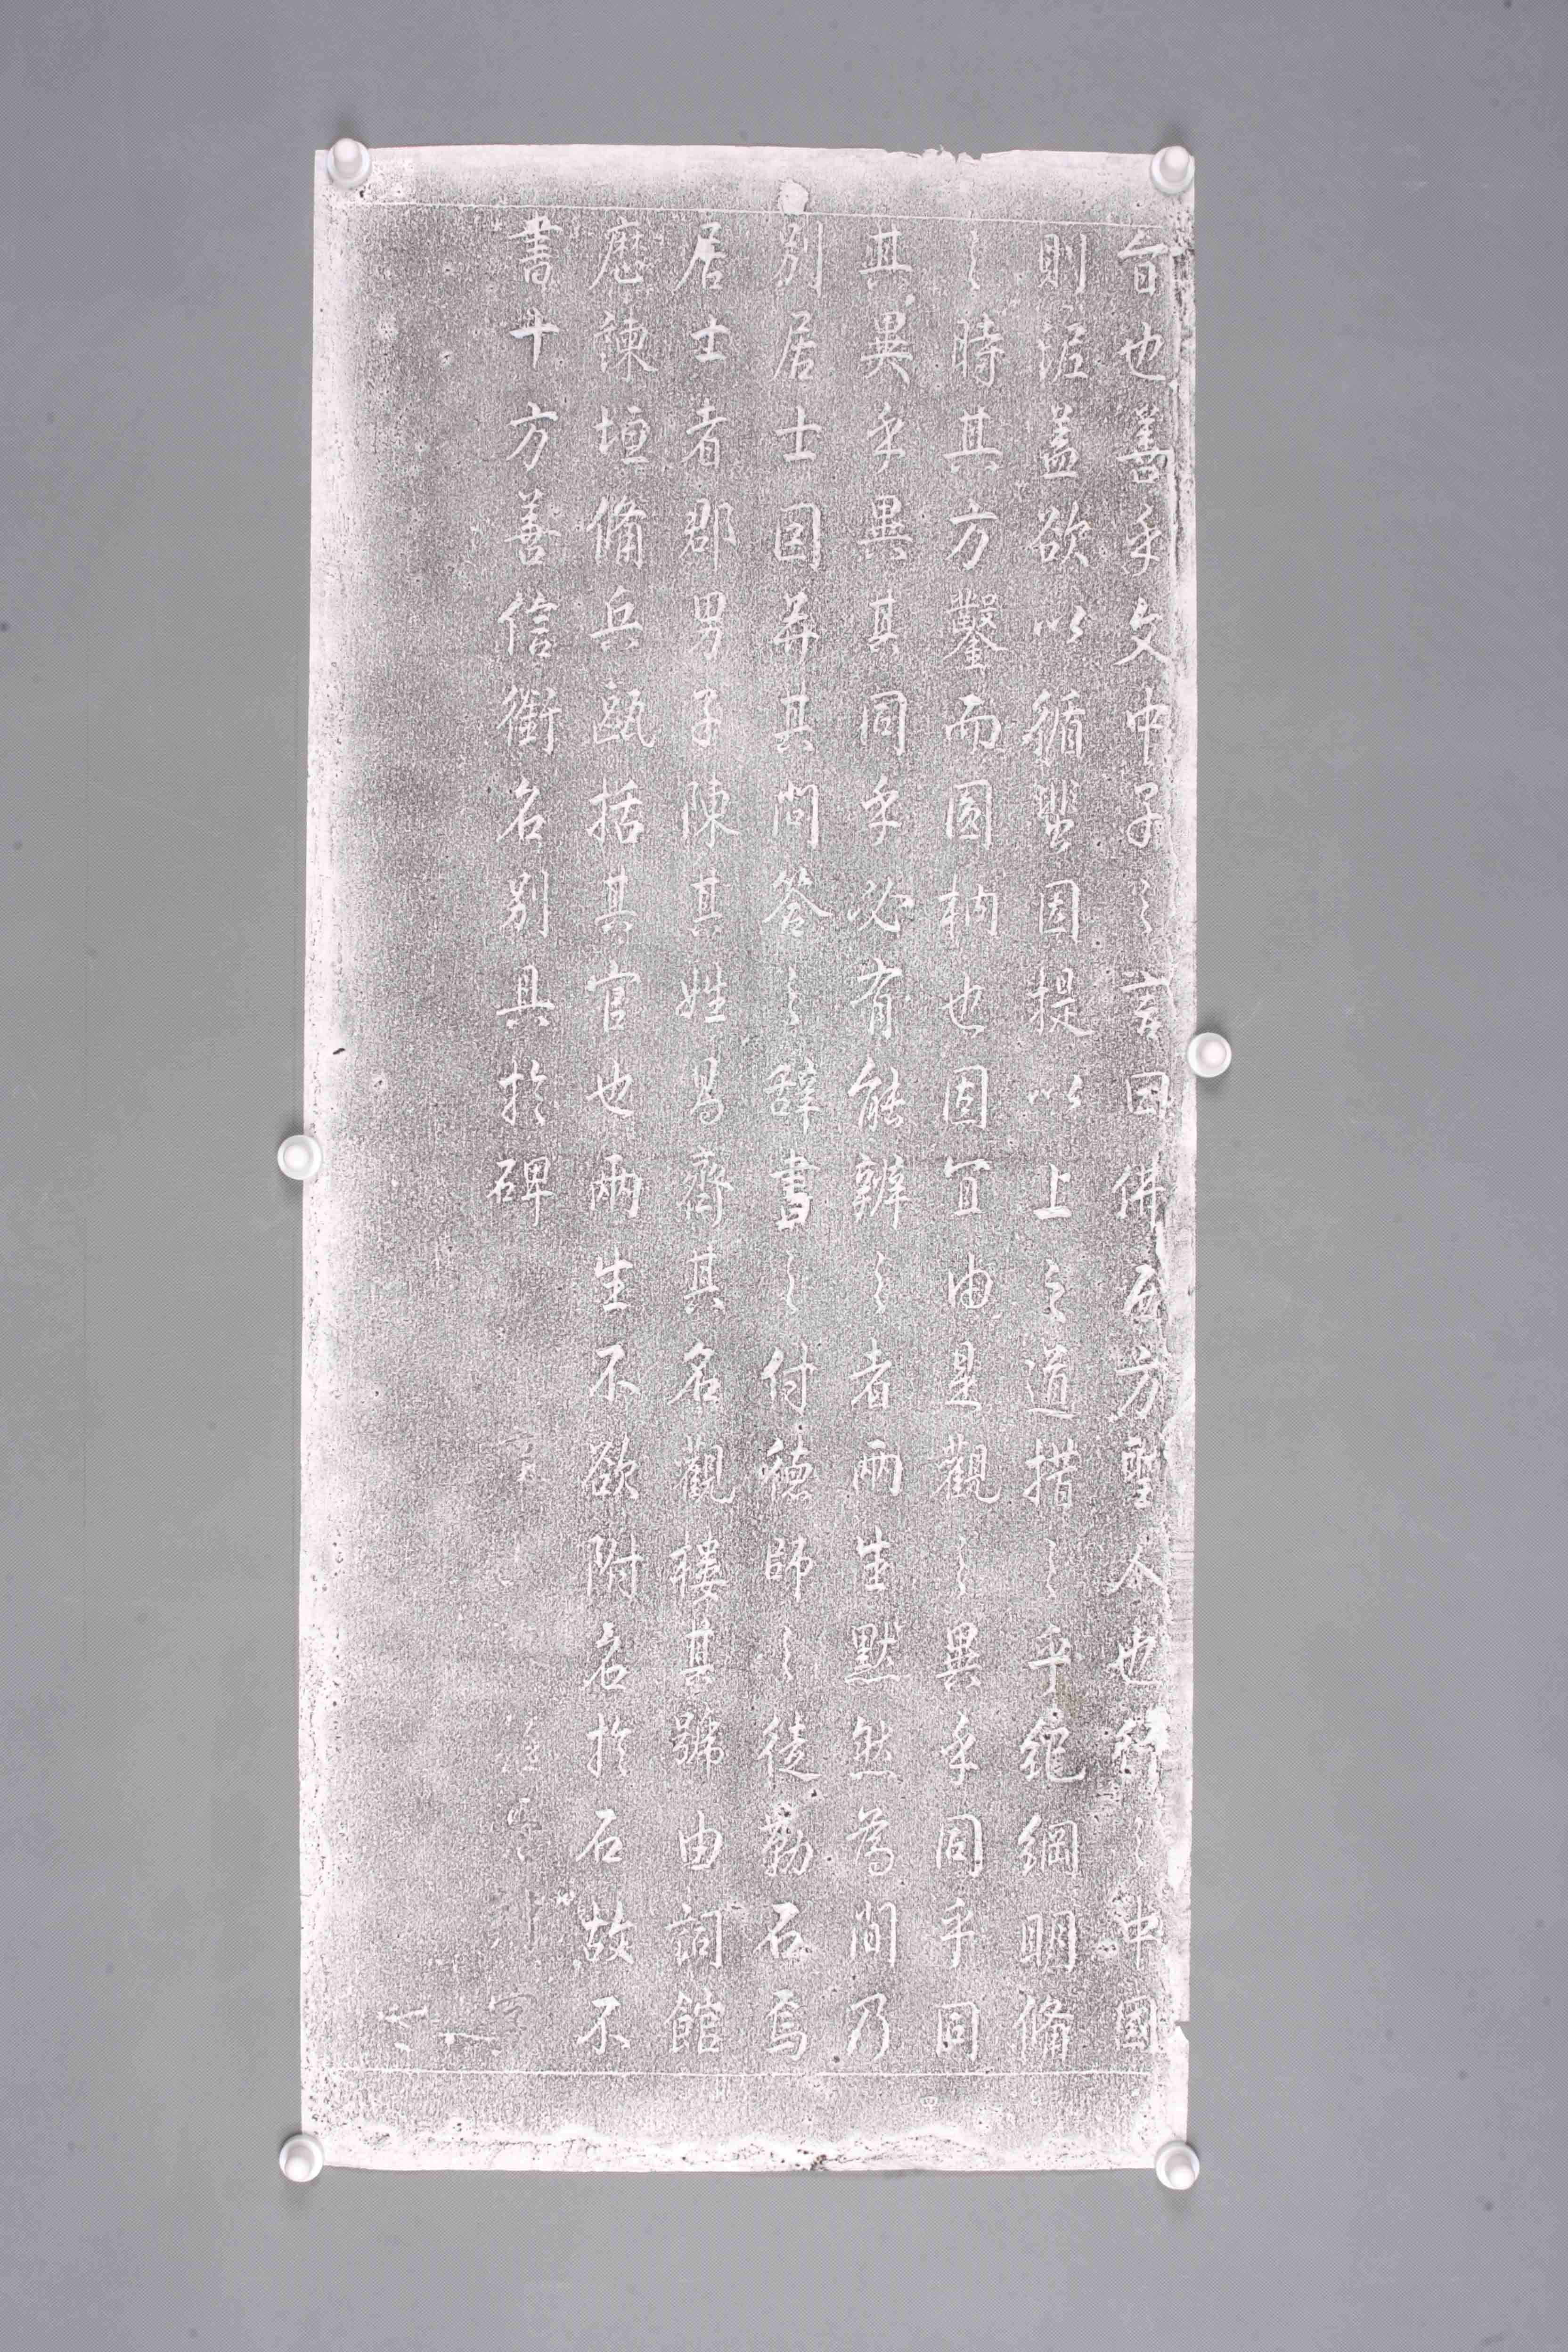 旨也善乎文中子之言曰佛西方聖人也錚之中國
則泥蓋欲以循誘因提以上之道措之乎絕綱明脩
之時其方鑿而圓枘也固宜由是觀之異乎同乎同
其異乎異其同乎必有能辨之者兩生默然為間乃
別居士因筭其問答之辭書之付德師之徒勒石焉
居士者郡男子陳其姓昌齊其名觀樓其號由詞館
歷諫垣備兵甌括其官也兩生不欲附名於石故不
書十方善信銜名別具於碑